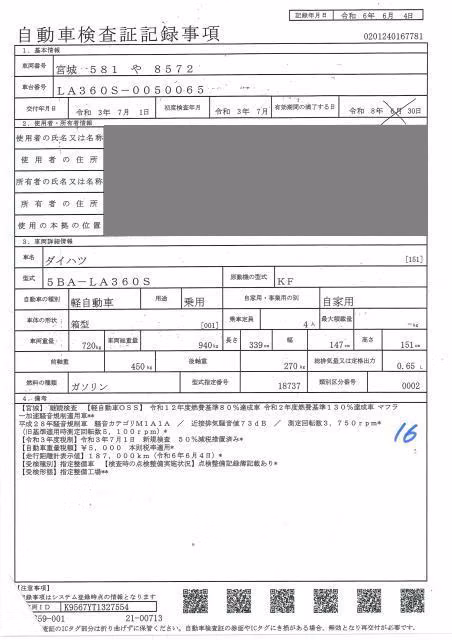 記録年月日 令和 6年 6月 4日
自動車検査証記録事項
0201240167781
1．基本情報
車両番号 宮城 581 や 8572
車台番号 LA360S-0050065
交付年月日 令和 3年 7月 1日 初度検査年月 令和 3年 7月 有効期間の満了する日 令和 8年 6月 30日
2．使用者・所有者情報
使用者の氏名又は名称
使用者の住所
所有者の氏名又は名称
所有者の住所
使用の本拠の位置
3．車両詳細情報
車名 ダイハツ [151]
型式 5BA-LA360S 原動機の型式 KF
自動車の種別 軽自動車 用途 乗用 自家用・事業用の別 自家用
車体の形状 箱型 [001] 乗車定員 4人 最大積載量 -kg
車両重量 720kg 車両総重量 940kg 長さ 339cm 幅 147cm 高さ 151cm
前軸重 450kg 後軸重 270kg 総排気量又は定格出力 0.65 L
燃料の種類 ガソリン 型式指定番号 18737 類別区分番号 0002
4．備考
【宮城】 継続検査 【軽自動車OSS】 令和12年度燃費基準80％達成車 令和2年度燃費基準130％達成車 マフラ
ー加速騒音規制適用車**
平成28年騒音規制車 騒音カテゴリM1A1A ／ 近接排気騒音値73dB ／ 測定回転数3，750rpm*
(旧基準適用時測定回転数5，100rpm)*
【令和3年度税制】令和3年7月1日 新規検査 50％減税措置済み*
【自動車重量税額】￥5，000 本則税率適用*
【走行距離計表示値】187，000km（令和6年6月4日）*
【受検種別】指定整備車 【検査時の点検整備実施状況】点検整備記録簿記載あり*
【受検形態】指定整備工場**
16
【注意事項】
記録事項はシステム登録時点の情報となります
両ID K9567YT1327554
759-001 21-00713
電証のICタグ部分は折り曲げずに保管ください。自動車検査証の券面やICタグにき損がある場合、無効となり再交付が必要です。